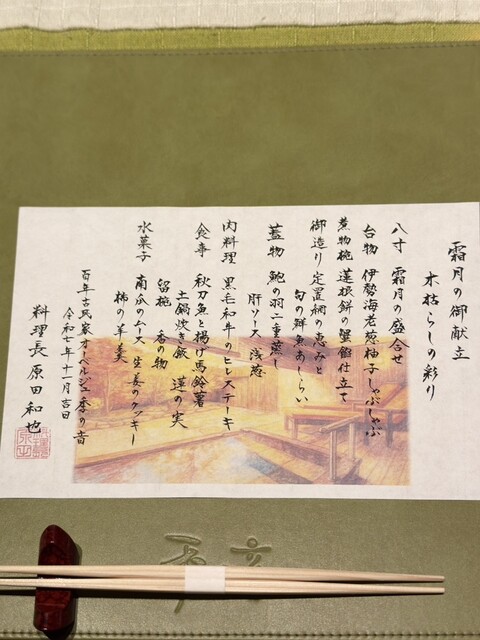 霜月の御献立
木枯らしの彩り
八寸 霜月の盛合せ
台物 伊勢海老葱柚子しゃぶしゃぶ
煮物椀 蓮根餅の蟹餡仕立て
御造り 定置網の恵みと
旬の鮮魚あしらい
蓋物 鮑の羽二重蒸し
肝ソース 浅葱
肉料理 黒毛和牛のヒレステーキ
食事 秋刀魚と揚げ馬鈴薯
土鍋炊き飯 蓮の実
留椀 香の物
水菓子 南瓜のムース 生姜のクッキー
柿の羊羹
百年古民家オーベルジュ 季の音
令和七年十一月吉日
料理長 原田和也